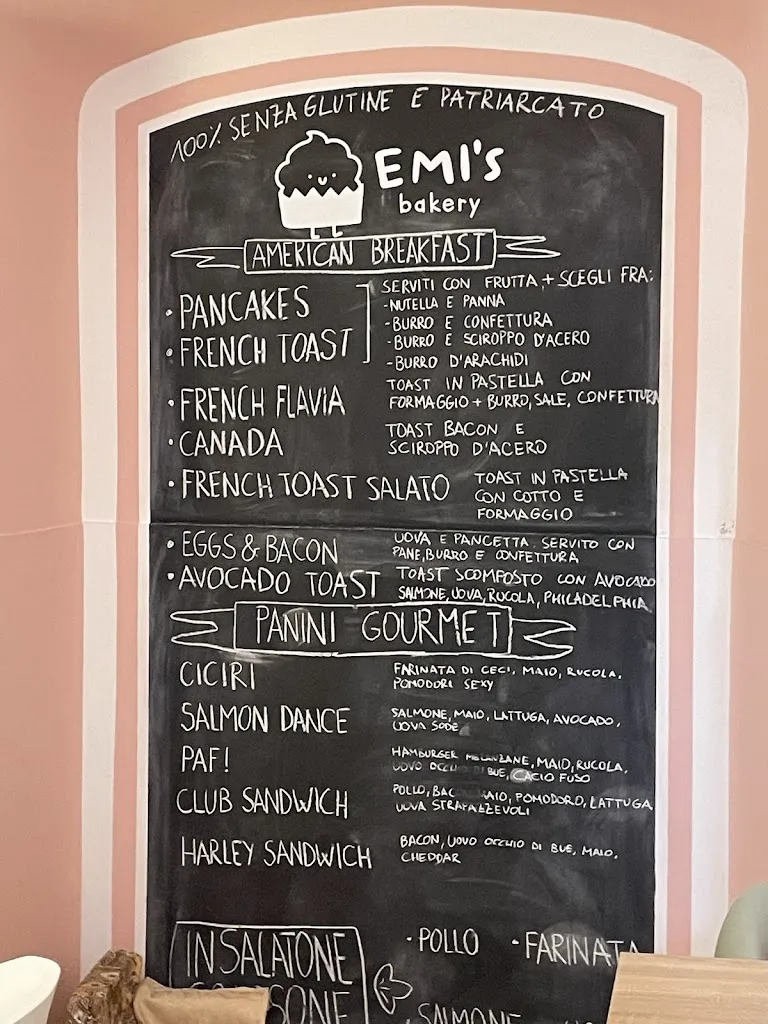 100% SENZA GLUTINE E PATRIARCATO
EMI'S
bakery
AMERICAN BREAKFAST
• PANCAKES
• FRENCH TOAST
SERVITI CON FRUTTA + SCEGLI FRA:
-NUTELLA E PANNA
-BURRO E CONFETTURA
-BURRO E SCIROPPO D'ACERO
-BURRO D'ARACHIDI
• FRENCH FLAVIA
TOAST IN PASTELLA CON
FORMAGGIO + BURRO, SALE, CONFETTURA
• CANADA
TOAST BACON E
SCIROPPO D'ACERO
• FRENCH TOAST SALATO
TOAST IN PASTELLA
CON COTTO E
FORMAGGIO
• EGGS & BACON
UOVA E PANCETTA. SERVITO CON
PANE, BURRO E CONFETTURA
• AVOCADO TOAST
TOAST SCOMPOSTO CON AVOCADO
SALMONE, UOVA, RUCOLA, PHILADELPHIA
PANINI GOURMET
CICIRI
FARINATA DI CECI, MAIO, RUCOLA,
POMODORI SEXY
SALMON DANCE
SALMONE, MAIO, LATTUGA, AVOCADO,
UOVA SODE
PAF!
HAMBURGER MELANZANE, MAIO, RUCOLA,
UOVO OCCHIO DI BUE, CACIO FUSO
CLUB SANDWICH
POLLO, BAC AIO, POMODORO, LATTUGA,
UOVA STRAPAZZEVOLI
HARLEY SANDWICH
BACON, UOVO OCCHIO DI BUE, MAIO,
CHEDDAR
INSALATONE
• POLLO
• FARINATA
• SALMONE